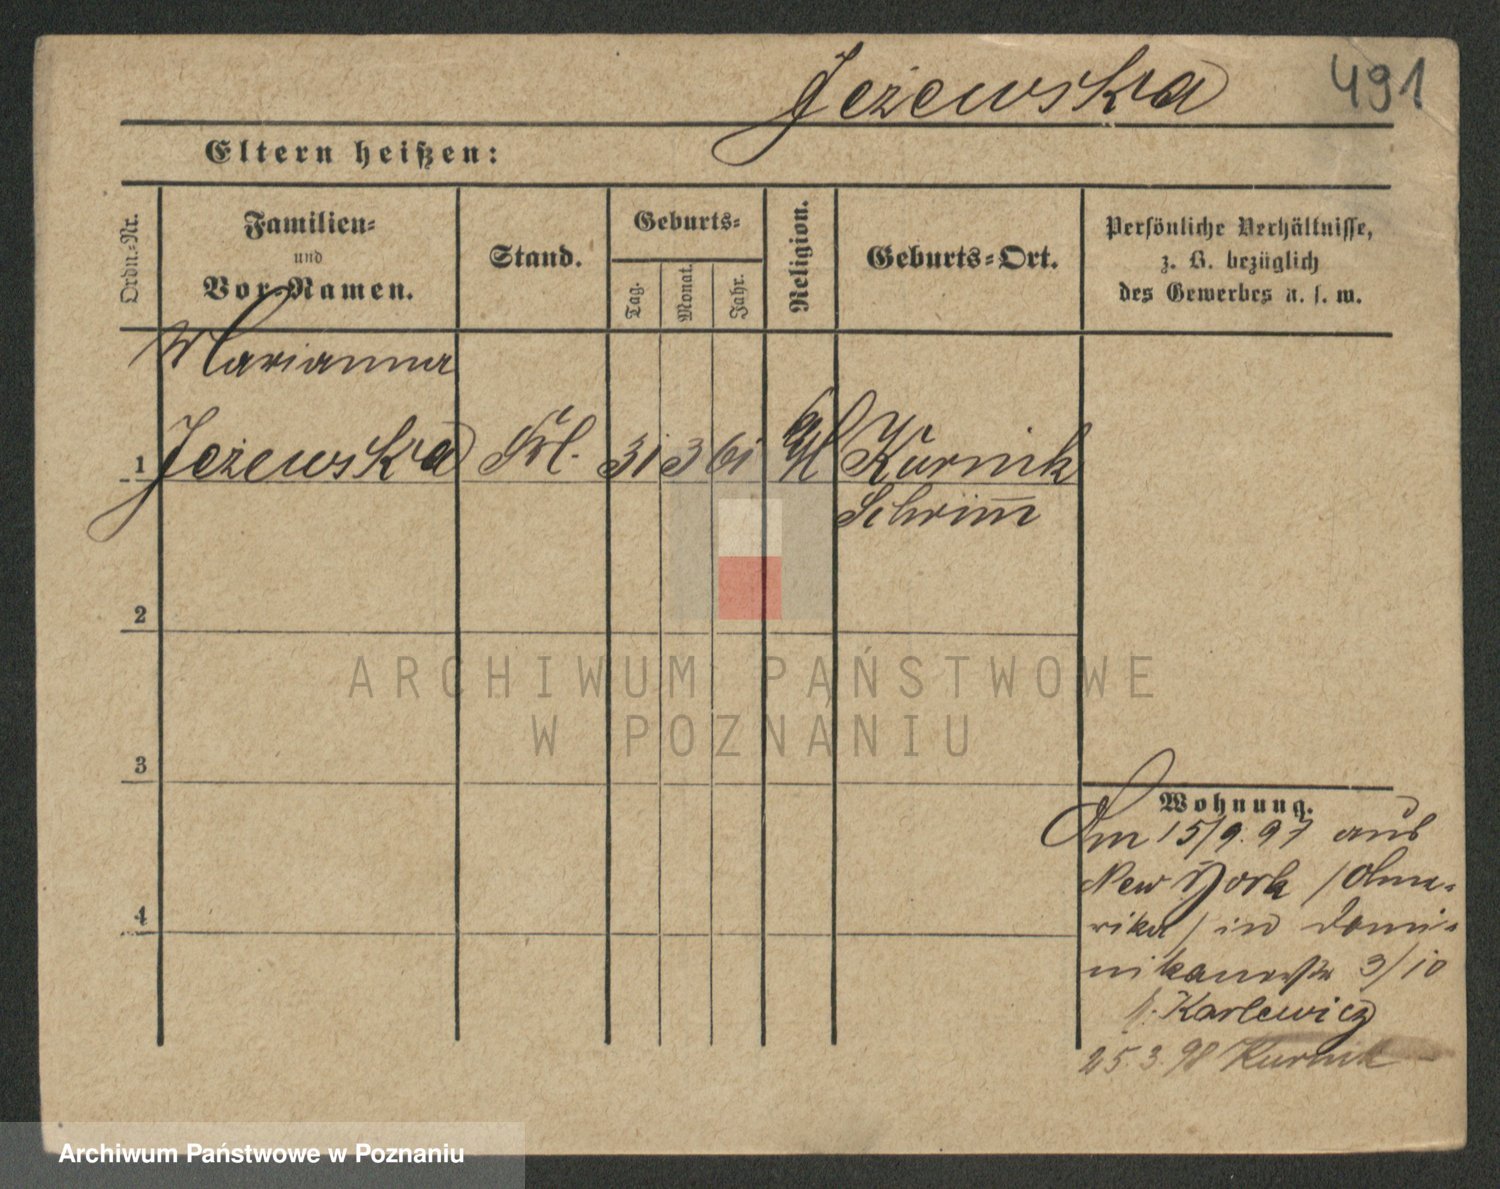 Jeżewska 491
Eltern heißen:
Ordn.-Nr.
Familien-
und
Vor-Namen.
Stand.
Geburts-
Tag.
Monat.
Jahr.
Religion.
Geburts-Ort.
Persönliche Verhältnisse,
z. B. bezüglich
des Gewerbes u. s. w.
Marianna
1 Jeżewska Frl. 31 3 61 Kurnik
Schrim̅
2
3
4
Wohnung.
Am 15/9. 97 aus
New York /Ame-
rika/ in Domi-
nikanerstr 3/10
b. Karlewicz
25.3.98 Kurnik
ARCHIWUM PAŃSTWOWE
W POZNANIU
Archiwum Państwowe w Poznaniu